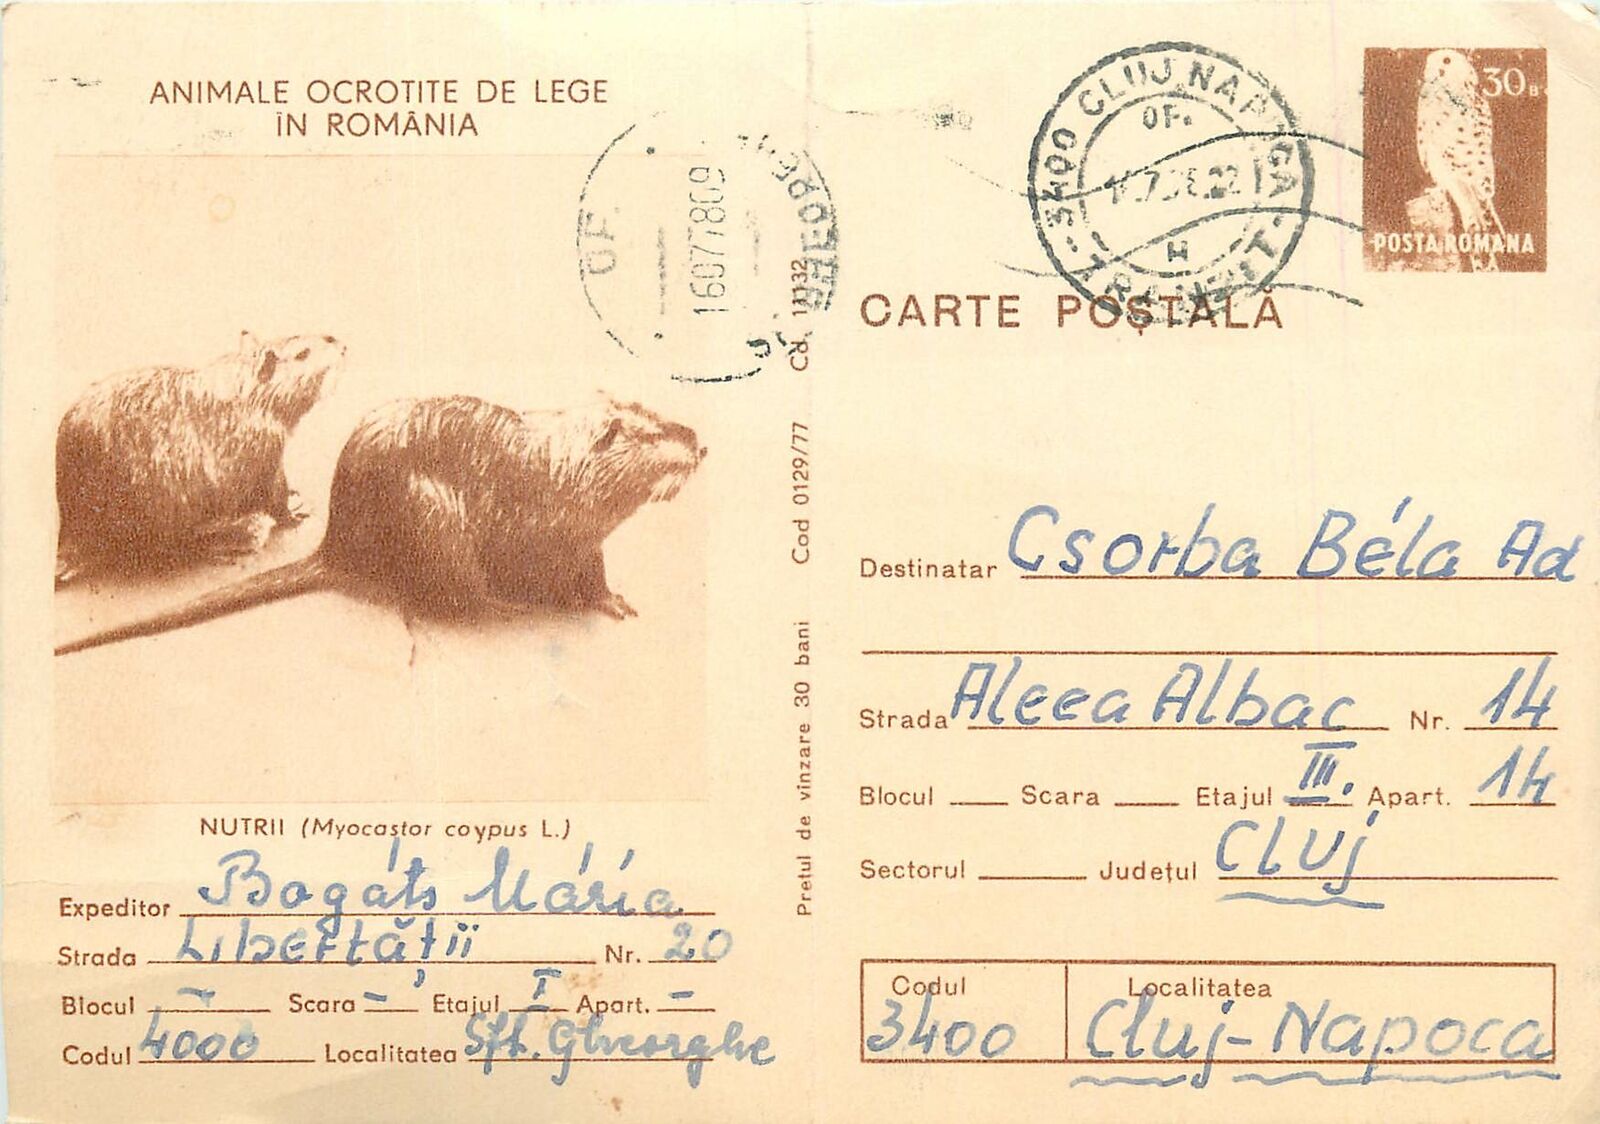 ANIMALE OCROTITE DE LEGE
ÎN ROMÂNIA
NUTRII (Myocastor coypus L.)
Expeditor Bogáts Mária
Strada Libertății Nr. 20
Blocul – Scara – Etajul I Apart. –
Codul 4000 Localitatea Sft. Gheorghe
Prețul de vînzare 30 bani Cod 0129/77 Cd. 11132
OF.
160778 09
3400 CLUJ NAPOCA
OF.
H
TRANZIT
30 B
POSTA ROMANA
CARTE POȘTALĂ
Destinatar Csorba Béla Ad
Strada Aleea Albac Nr. 14
Blocul Scara Etajul III. Apart. 14
Sectorul Județul Cluj
Codul Localitatea
3400 Cluj-Napoca